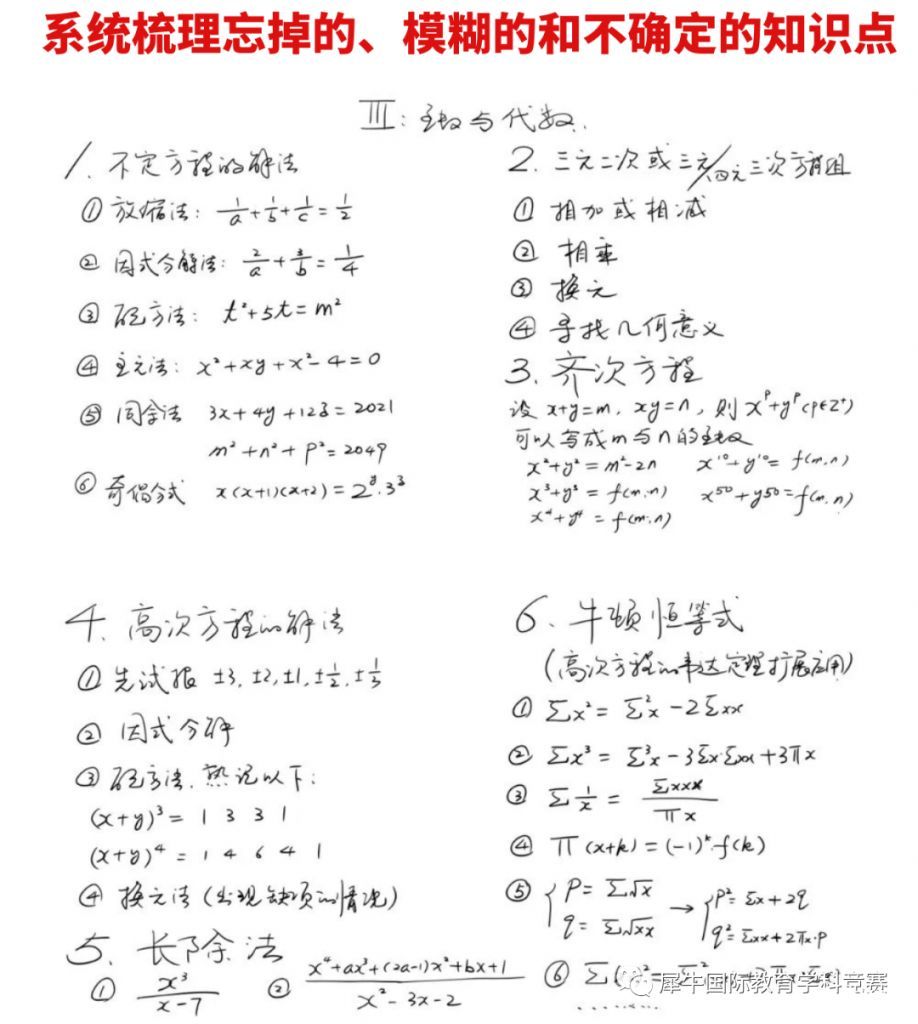 系统梳理忘掉的、模糊的和不确定的知识点
III: 函数与代数.
1. 不定方程的解法
① 放缩法: 1/a + 1/b + 1/c = 1/2
② 因式分解法: 2/a + 3/b = 1/4
③ 配方法: t²+5t=m²
④ 主元法: x²+xy+x²-4=0
⑤ 同余法 3x+4y+12z=2021
m²+n²+p²=2049
⑥ 奇偶分式 x(x+1)(x+2)=2^y·3^z
2. 三元二次或三元/四元三次方程组
① 相加或相减
② 相乘
③ 换元
④ 寻找几何意义
3. 齐次方程
设 x+y=m, xy=n, 则 x^p+y^p (p∈Z⁺)
可以写成m与n的函数
x²+y²=m²-2n x¹⁰+y¹⁰=f(m,n)
x³+y³=f(m,n) x⁵⁰+y⁵⁰=f(m,n)
x⁴+y⁴=f(m,n)
4. 高次方程的解法
① 先试根 ±3, ±2, ±1, ±1/2, ±1/3
② 因式分解
③ 配方法. 熟记以下:
(x+y)³= 1 3 3 1
(x+y)⁴= 1 4 6 4 1
④ 换元法 (出现缺项的情况)
5. 长除法
① x³/(x-7) ② (x⁴+ax³+(2a-1)x²+bx+1)/(x²-3x-2)
6. 牛顿恒等式
(高次方程的韦达定理扩展应用)
① Σx²=Σ²x-2Σxx
② Σx³=Σ³x-3Σx·Σxx+3πx
③ Σ1/x = Σxxx/πx
④ π(x+k)=(-1)^k·f(k)
⑤ { p=Σ√x q=Σ√xx → { p²=Σx+2q q²=Σxx+2πx·p
⑥ Σ
犀牛国际教育学科竞赛